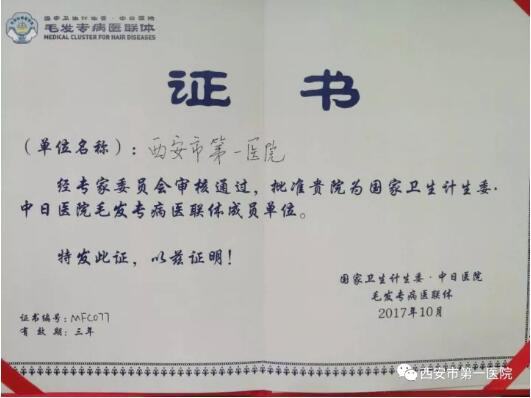 国家卫生计生委·中日医院
毛发专病医联体
MEDICAL CLUSTER FOR HAIR DISEASES
证 书
（单位名称）：西安市第一医院
经专家委员会审核通过，批准贵院为国家卫生计生委·
中日医院毛发专病医联体成员单位。
特发此证，以兹证明！
国家卫生计生委·中日医院
毛发专病医联体
2017年10月
证书编号：MFC077
有 效 期：三年
西安市第一医院